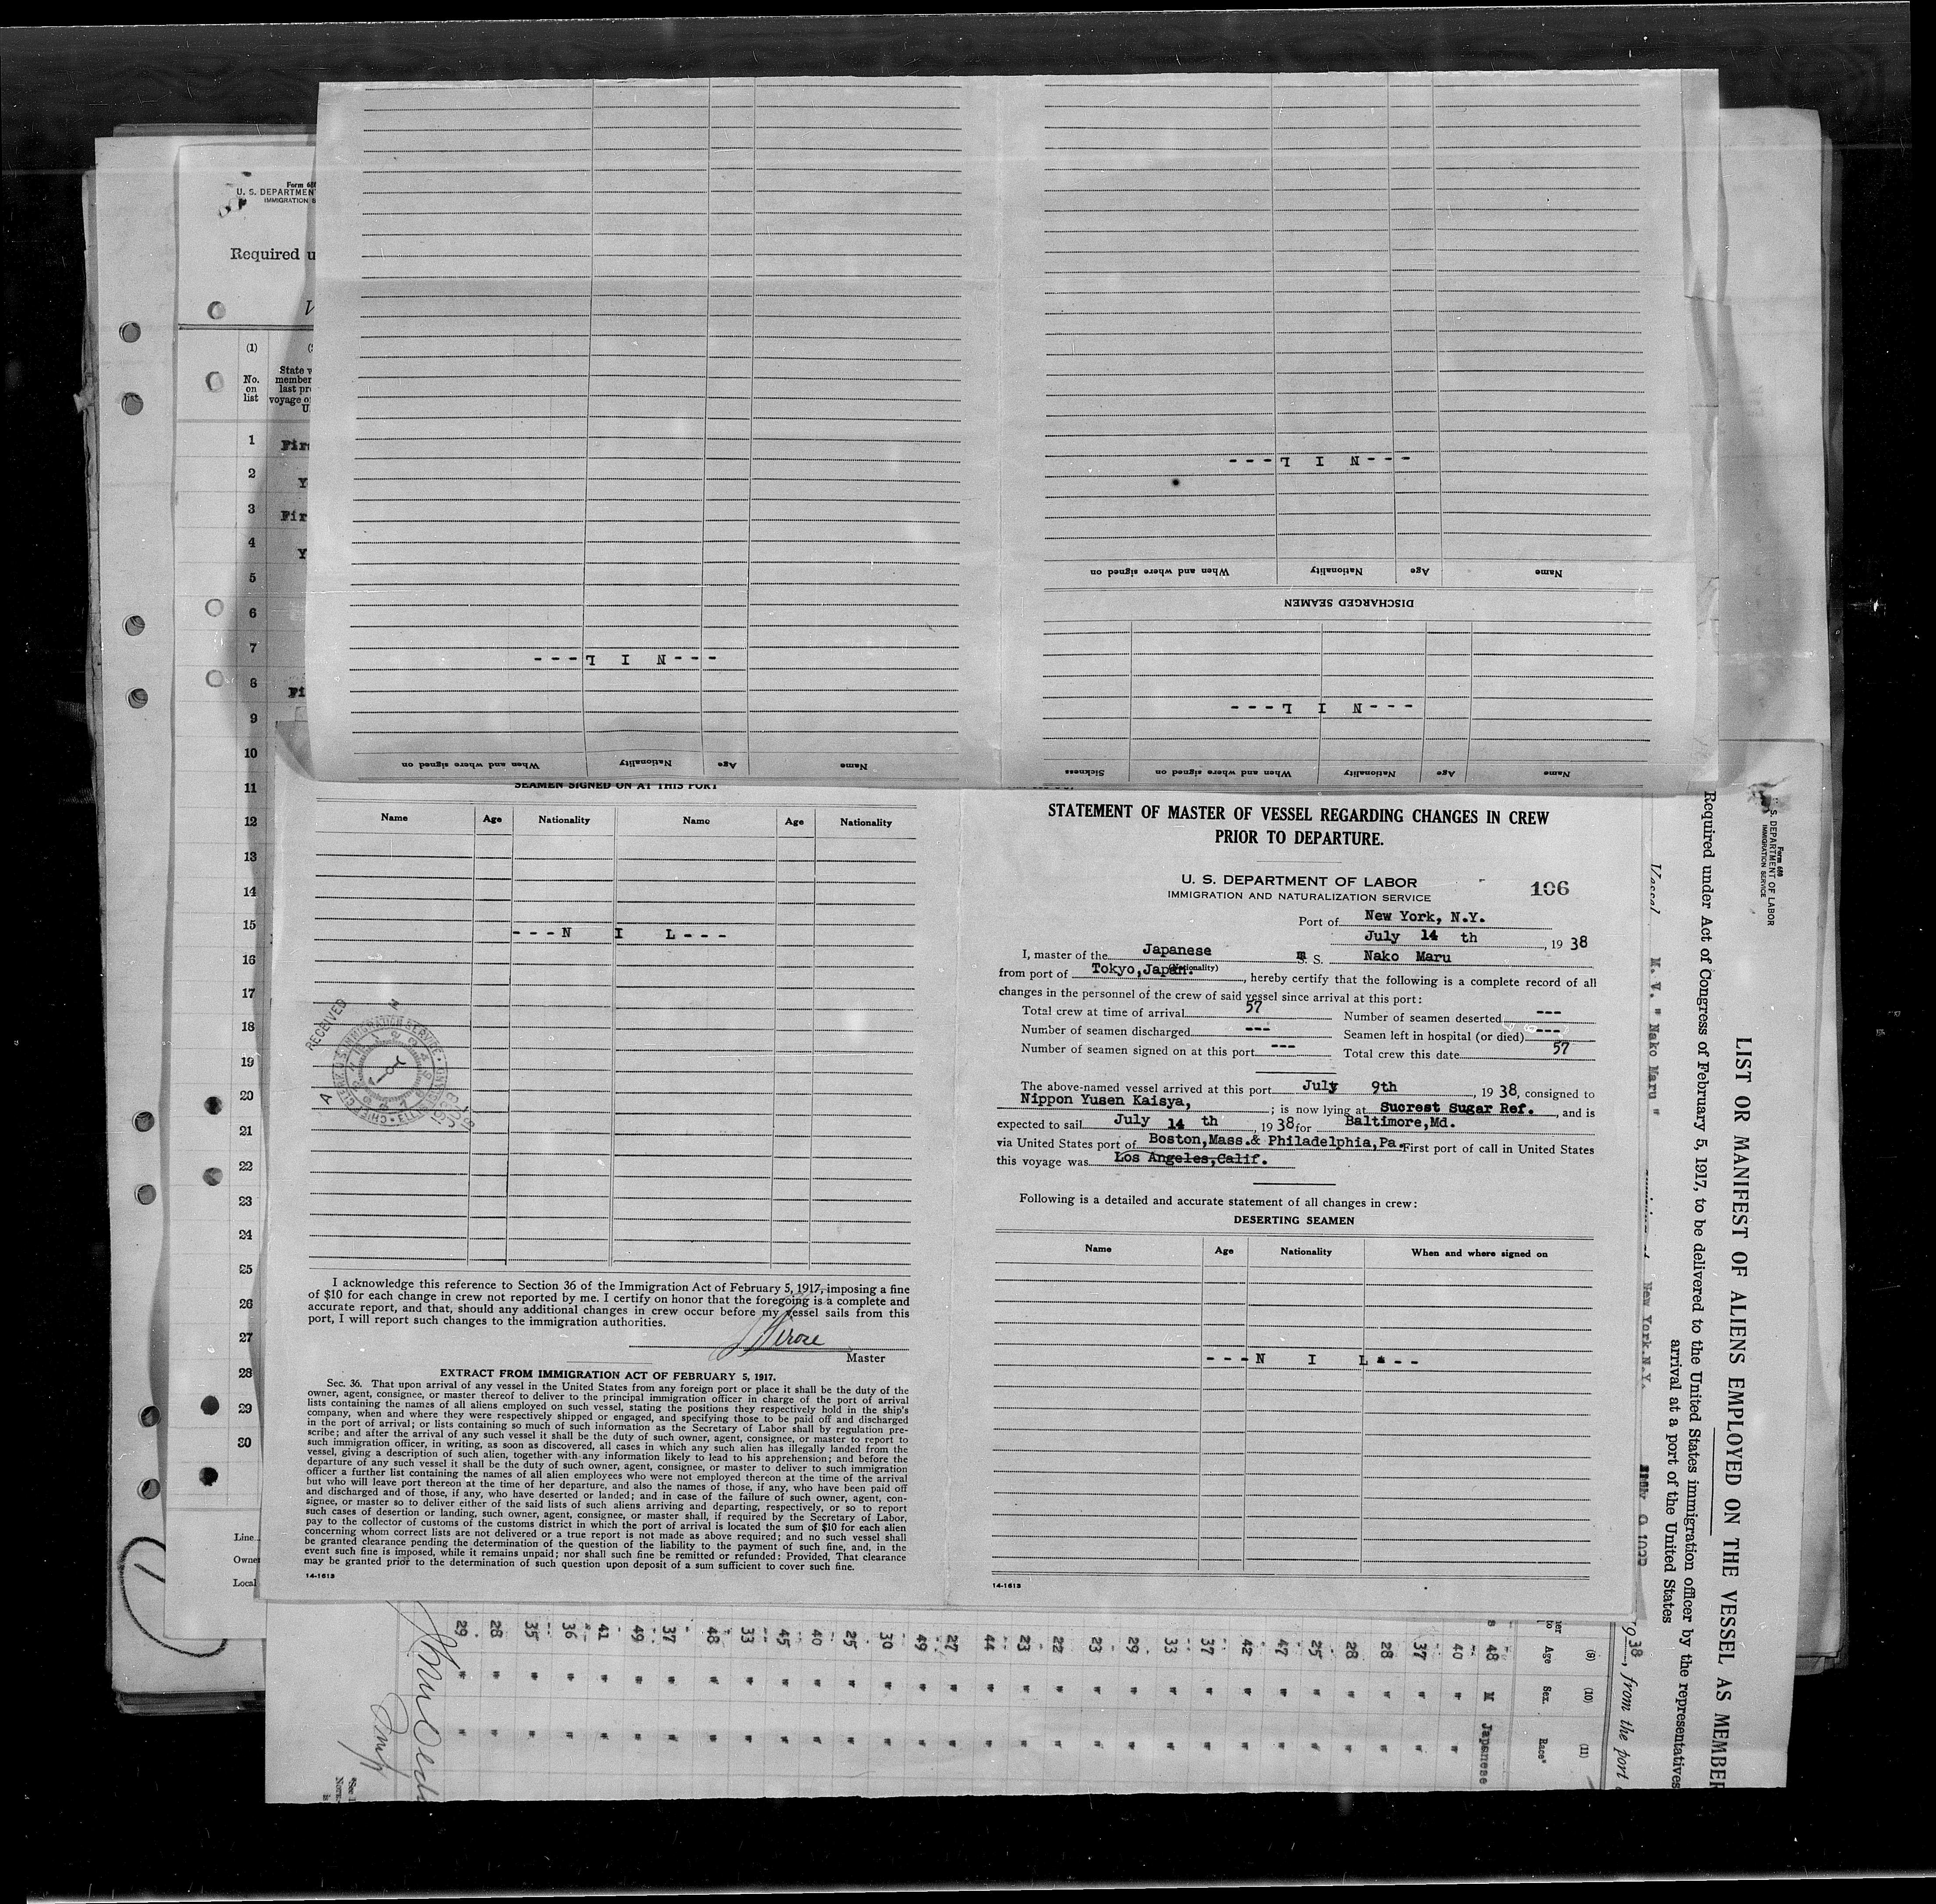 Form 680
U. S. DEPARTMEN
IMMIGRATION S
Required u
(1)
No.
on
list
State w
member
last pr
voyage o
U
1 Firs
2 Y
3 Fir
4 Y
5
6
7
8 Fi
9
10
11
12
13
14
15
16
17
18
19
20
21
22
23
24
25
26
27
28
29
30
Line
Owne
Local
Name Age Nationality When and where signed on
---N I L---
Name Age Nationality When and where signed on Sickness
---N I L---
DISCHARGED SEAMEN
Name Age Nationality When and where signed on
---N I L---
SEAMEN SIGNED ON AT THIS PORT
Name Age Nationality Name Age Nationality
---N I L---
RECEIVED
I acknowledge this reference to Section 36 of the Immigration Act of February 5, 1917, imposing a fine
of $10 for each change in crew not reported by me. I certify on honor that the foregoing is a complete and
accurate report, and that, should any additional changes in crew occur before my vessel sails from this
port, I will report such changes to the immigration authorities.
Master
EXTRACT FROM IMMIGRATION ACT OF FEBRUARY 5, 1917.
Sec. 36. That upon arrival of any vessel in the United States from any foreign port or place it shall be the duty of the
owner, agent, consignee, or master thereof to deliver to the principal immigration officer in charge of the port of arrival
lists containing the names of all aliens employed on such vessel, stating the positions they respectively hold in the ship's
company, when and where they were respectively shipped or engaged, and specifying those to be paid off and discharged
in the port of arrival; or lists containing so much of such information as the Secretary of Labor shall by regulation pre-
scribe; and after the arrival of any such vessel it shall be the duty of such owner, agent, consignee, or master to report to
such immigration officer, in writing, as soon as discovered, all cases in which any such alien has illegally landed from the
vessel, giving a description of such alien, together with any information likely to lead to his apprehension; and before the
departure of any such vessel it shall be the duty of such owner, agent, consignee, or master to deliver to such immigration
officer a further list containing the names of all alien employees who were not employed thereon at the time of the arrival
but who will leave port thereon at the time of her departure, and also the names of those, if any, who have been paid off
and discharged and of those, if any, who have deserted or landed; and in case of the failure of such owner, agent, con-
signee, or master so to deliver either of the said lists of such aliens arriving and departing, respectively, or so to report
such cases of desertion or landing, such owner, agent, consignee, or master shall, if required by the Secretary of Labor,
pay to the collector of customs of the customs district in which the port of arrival is located the sum of $10 for each alien
concerning whom correct lists are not delivered or a true report is not made as above required; and no such vessel shall
be granted clearance pending the determination of the question of the liability to the payment of such fine, and, in the
event such fine is imposed, while it remains unpaid; nor shall such fine be remitted or refunded: Provided, That clearance
may be granted prior to the determination of such question upon deposit of a sum sufficient to cover such fine.
14-1613
STATEMENT OF MASTER OF VESSEL REGARDING CHANGES IN CREW
PRIOR TO DEPARTURE.
U. S. DEPARTMENT OF LABOR
IMMIGRATION AND NATURALIZATION SERVICE
106
Port of New York, N.Y.
July 14 th, 1938
I, master of the Japanese m S. S. Nako Maru
(Nationality)
from port of Tokyo,Japan., hereby certify that the following is a complete record of all
changes in the personnel of the crew of said vessel since arrival at this port:
Total crew at time of arrival 57 Number of seamen deserted ---
Number of seamen discharged --- Seamen left in hospital (or died) ---
Number of seamen signed on at this port --- Total crew this date 57
The above-named vessel arrived at this port July 9th, 1938, consigned to
Nippon Yusen Kaisya, ; is now lying at Sucrest Sugar Ref., and is
expected to sail July 14 th, 1938 for Baltimore,Md.
via United States port of Boston,Mass.& Philadelphia,Pa. First port of call in United States
this voyage was Los Angeles,Calif.
Following is a detailed and accurate statement of all changes in crew:
DESERTING SEAMEN
Name Age Nationality When and where signed on
---N I L---
14-1613
Form 680
S. DEPARTMENT OF LABOR
IMMIGRATION SERVICE
LIST OR MANIFEST OF ALIENS EMPLOYED ON THE VESSEL AS MEMBER
Required under Act of Congress of February 5, 1917, to be delivered to the United States immigration officer by the representatives
arrival at a port of the United States
Vessel M. V. " Nako Maru "
New York.N.Y.
1938, from the port
(9) (10) (11)
Age Sex. Race*
48 M Japanese
40 " "
37 " "
28 " "
28 " "
25 " "
47 " "
42 " "
37 " "
33 " "
29 " "
23 " "
22 " "
23 " "
44 " "
27 " "
49 " "
30 " "
25 " "
40 " "
45 " "
33 " "
48 " "
37 " "
49 " "
41 " "
36 " "
35 " "
28 " "
29 " "